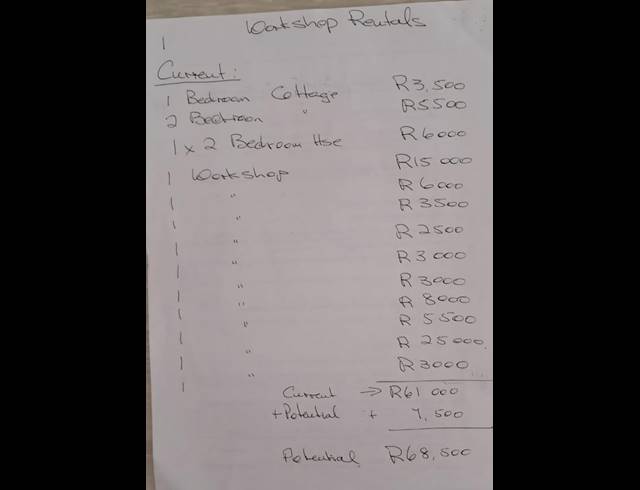 Workshop Rentals
1
Current:
1 Bedroom Cottage R3,500
2 Bedroom " R5500
1 x 2 Bedroom Hse R6000
1 Workshop R15 000
1 " R6000
1 " R3500
1 " R2500
1 " R3000
1 " R3000
1 " R8000
1 " R5500
1 " R25000
1 " R3000
Current → R61 000
+Potential + 7,500
Potential R68,500